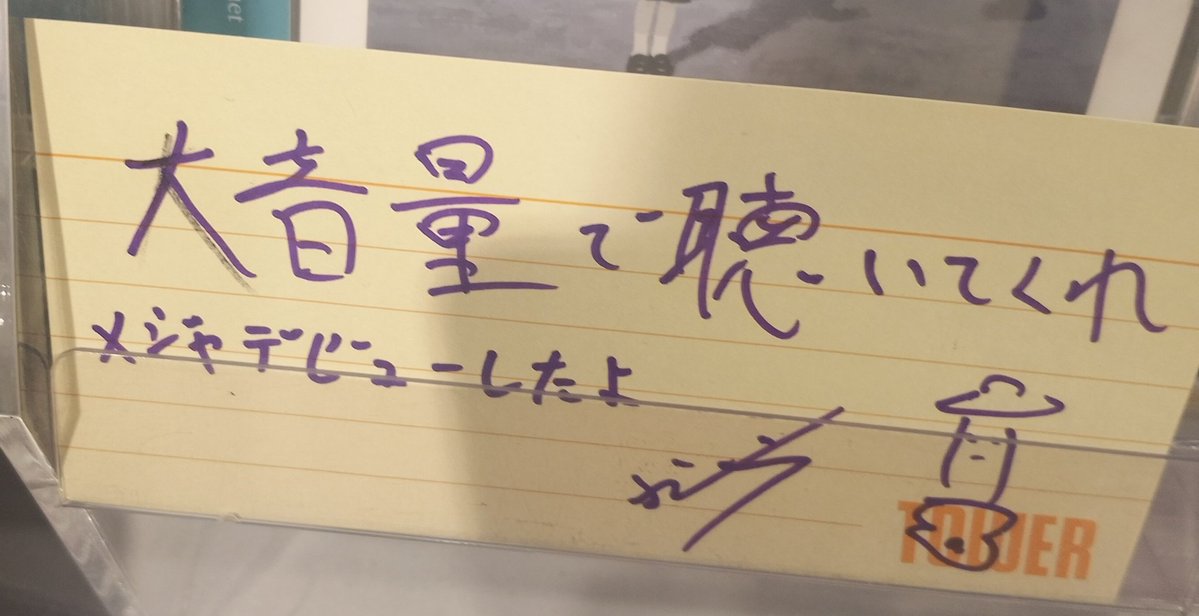 et
大音量で聴いてくれ
メジャデビューしたよ
TOWER